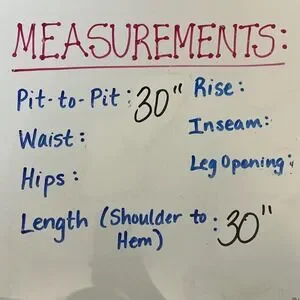 MEASUREMENTS:
Pit-to-Pit: 30"
Waist:
Hips:
Length (Shoulder to Hem): 30"
Rise:
Inseam:
Leg Opening: